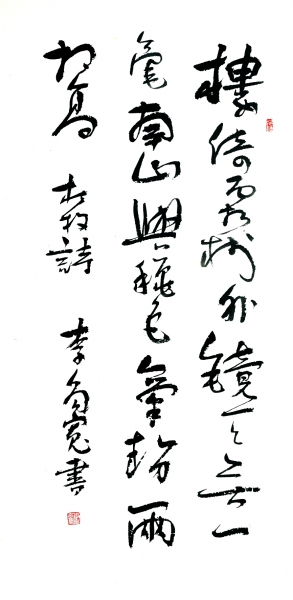 樓倚霜樹外鏡天無一
毫南山與穐色氣勢兩
相高 杜牧詩 李寬書